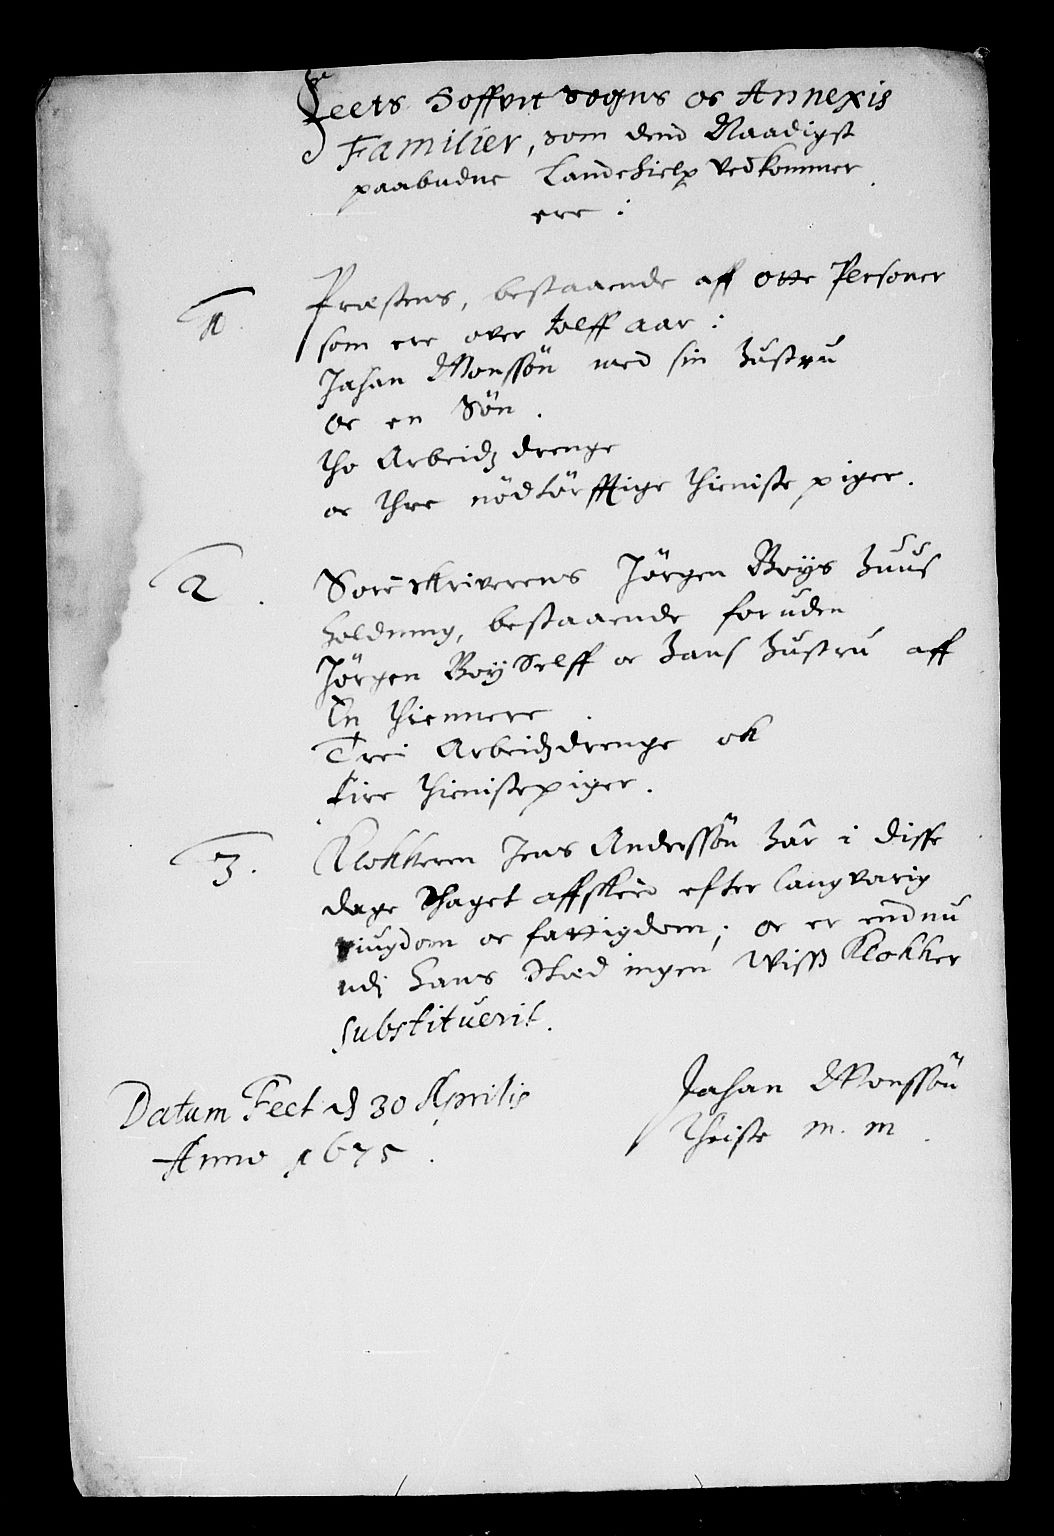 Feets Hoffvit Sogns oc Annexis
Familier, som dend Naadigst
paabudne Landehielp Vedkommer
ere :
1.
Præstens, bestaaende aff otte Personer
som ere over tolff aar :
Johan Monssön med sin Hustru
oc en Sön .
tho Arbeidz drenge
oc thre nödtörfftige thieniste piger.
2.
Sorenskriverens Jörgen Boÿs Huus
holdning, bestaaende foruden
Jörgen Boÿ Selff oc Hans Hustru aff
En thiennere .
Trei Arbeidzdrenge ok
fire thienistepiger.
3.
Klokkeren Jens Anderssön Har i disse
dage thaget affskeed efter langvarig
siugdom oc fattigdom; oc er endnu
udi hans stæd ingen Wiss Klokker
Substituerit.
Datum Feet d 30 Aprilis
Anno 1675 .
Johan Monssön
Theiste m. m .